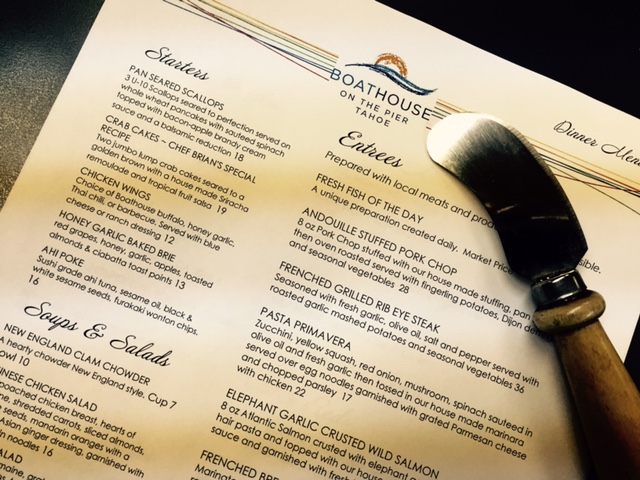 BOATHOUSE
ON THE PIER
TAHOE
Dinner
Starters
PAN SEARED SCALLOPS
3 U-10 Scallops seared to perfection served on
whole wheat pancakes with sauteed spinach
topped with bacon-apple brandy cream
sauce and a balsamic reduction 18
CRAB CAKES ~ CHEF BRIAN'S SPECIAL
RECIPE
Two jumbo lump crab cakes seared to a
golden brown with a house made Sriracha
remoulade and tropical fruit salsa 19
CHICKEN WINGS
Choice of Boathouse buffalo, honey garlic,
Thai chili, or barbecue. Served with blue
cheese or ranch dressing 12
HONEY GARLIC BAKED BRIE
red grapes, honey, garlic, apples, toasted
almonds & ciabatta toast points 13
AHI POKE
Sushi grade ahi tuna, sesame oil, black &
white sesame seeds, furakaki wonton chips.
16
Soups & Salads
NEW ENGLAND CLAM CHOWDER
A hearty chowder New England style. Cup 7
10
CHICKEN SALAD
poached chicken breast, hearts of
shredded carrots, sliced almonds,
seeds, mandarin oranges with a
ginger dressing, garnished with
noodles 16
Entrees
Prepared with local meats and
FRESH FISH OF THE DAY
A unique preparation created daily. Market Price
ANDOUILLE STUFFED PORK CHOP
8 oz Pork Chop stuffed with our house made stuffing, pan
then oven roasted served with fingerling potatoes, Dijon
and seasonal vegetables 28
FRENCHED GRILLED RIB EYE STEAK
Seasoned with fresh garlic, olive oil, salt and pepper served with
roasted garlic mashed potatoes and seasonal vegetables 36
PASTA PRIMAVERA
Zucchini, yellow squash, red onion, mushroom, spinach sauteed in
olive oil and fresh garlic then tossed in our house made marinara
served over egg noodles garnished with grated Parmesan cheese
and chopped parsley 17
with chicken 22
ELEPHANT GARLIC CRUSTED WILD SALMON
8 oz Atlantic Salmon crusted with elephant
hair pasta and topped with our house
sauce and garnished with fresh
FRENCHED